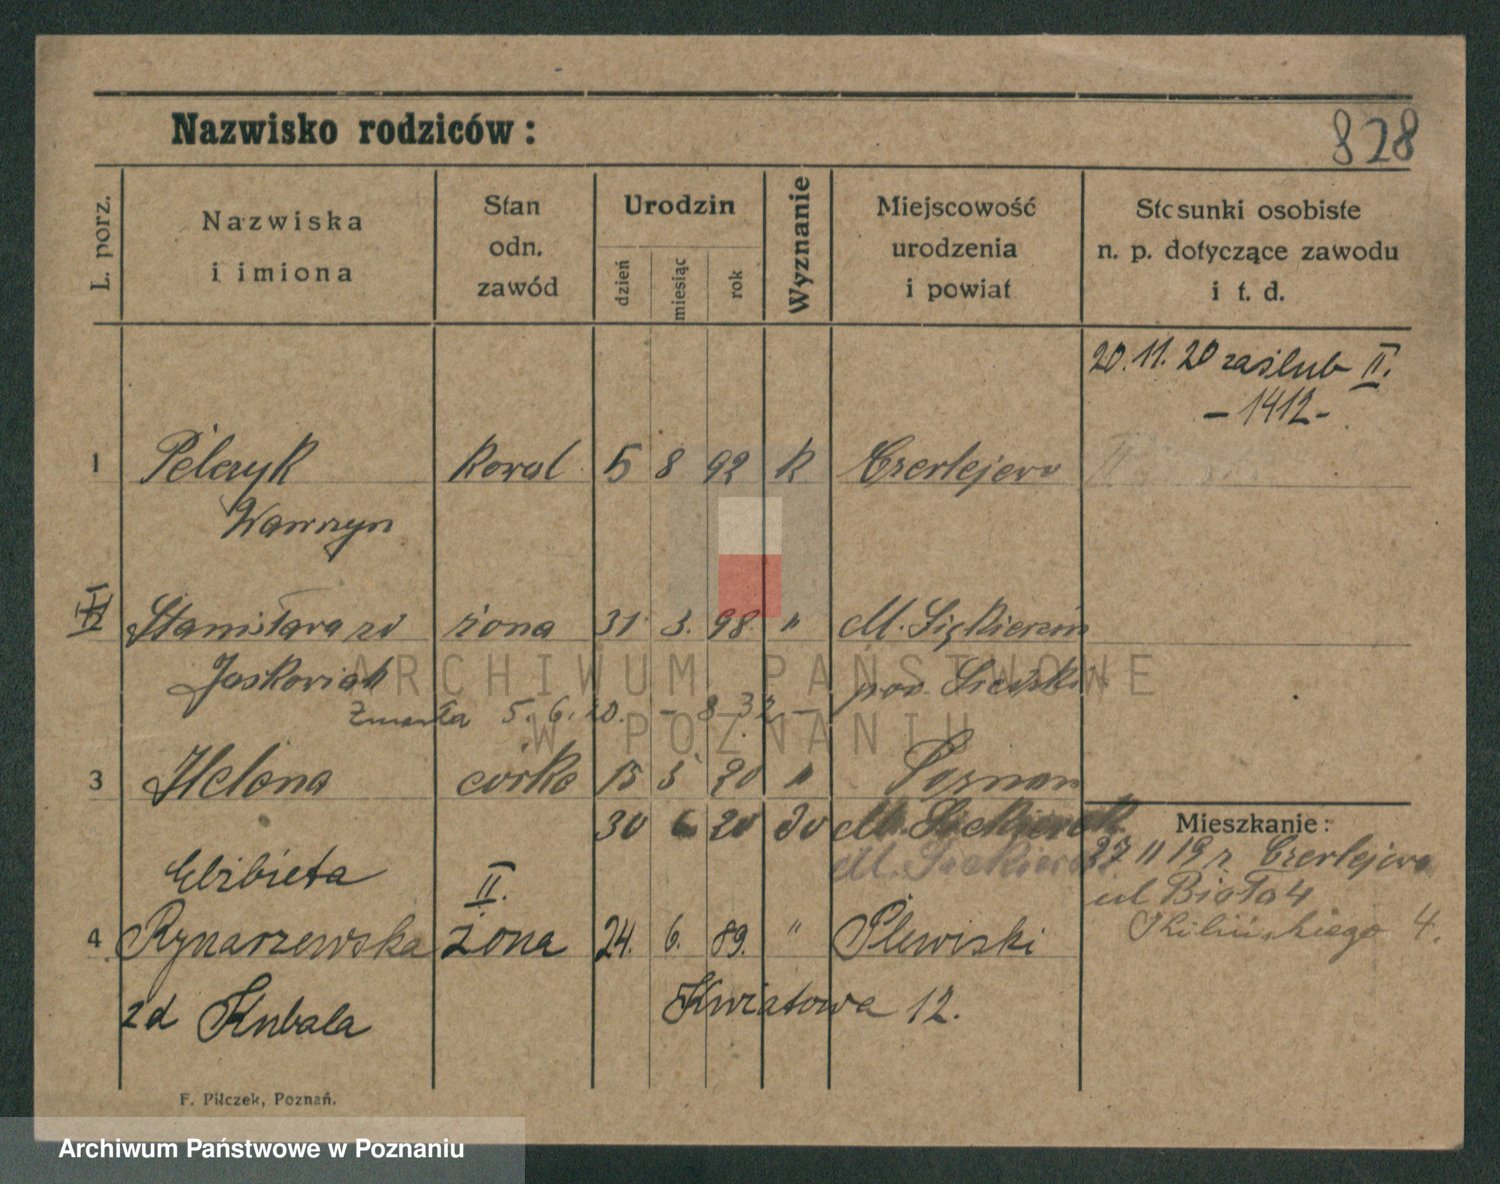 Nazwisko rodziców:
828
L. porz.
Nazwiska
i imiona
Stan
odn.
zawód
Urodzin
dzień
miesiąc
rok
Wyznanie
Miejscowość
urodzenia
i powiat
Stosunki osobiste
n. p. dotyczące zawodu
i t. d.
20.11.20 zaślub II.
- 1412 -
1 Pelczyk kowal 5 8 92 k Czerlejewo
Wawrzyn
II Stanisława żona 31. 3. 98. "
Jaskowiak
Zmarła 5. 6. 20. - 832 -
3 Helena córka 15 5 20 " Poznań
30 6 20 do M.
Mieszkanie:
27 11 19 z Czerlejewa
Elżbieta II.
ul Biała 4
4 Rynarzewska żona 24. 6. 89. " Plewiski
Kilińskiego 4.
zd Kubala Kwiatowa 12.
F. Pilczek, Poznań.
ARCHIWUM PAŃSTWOWE
W POZNANIU
Archiwum Państwowe w Poznaniu